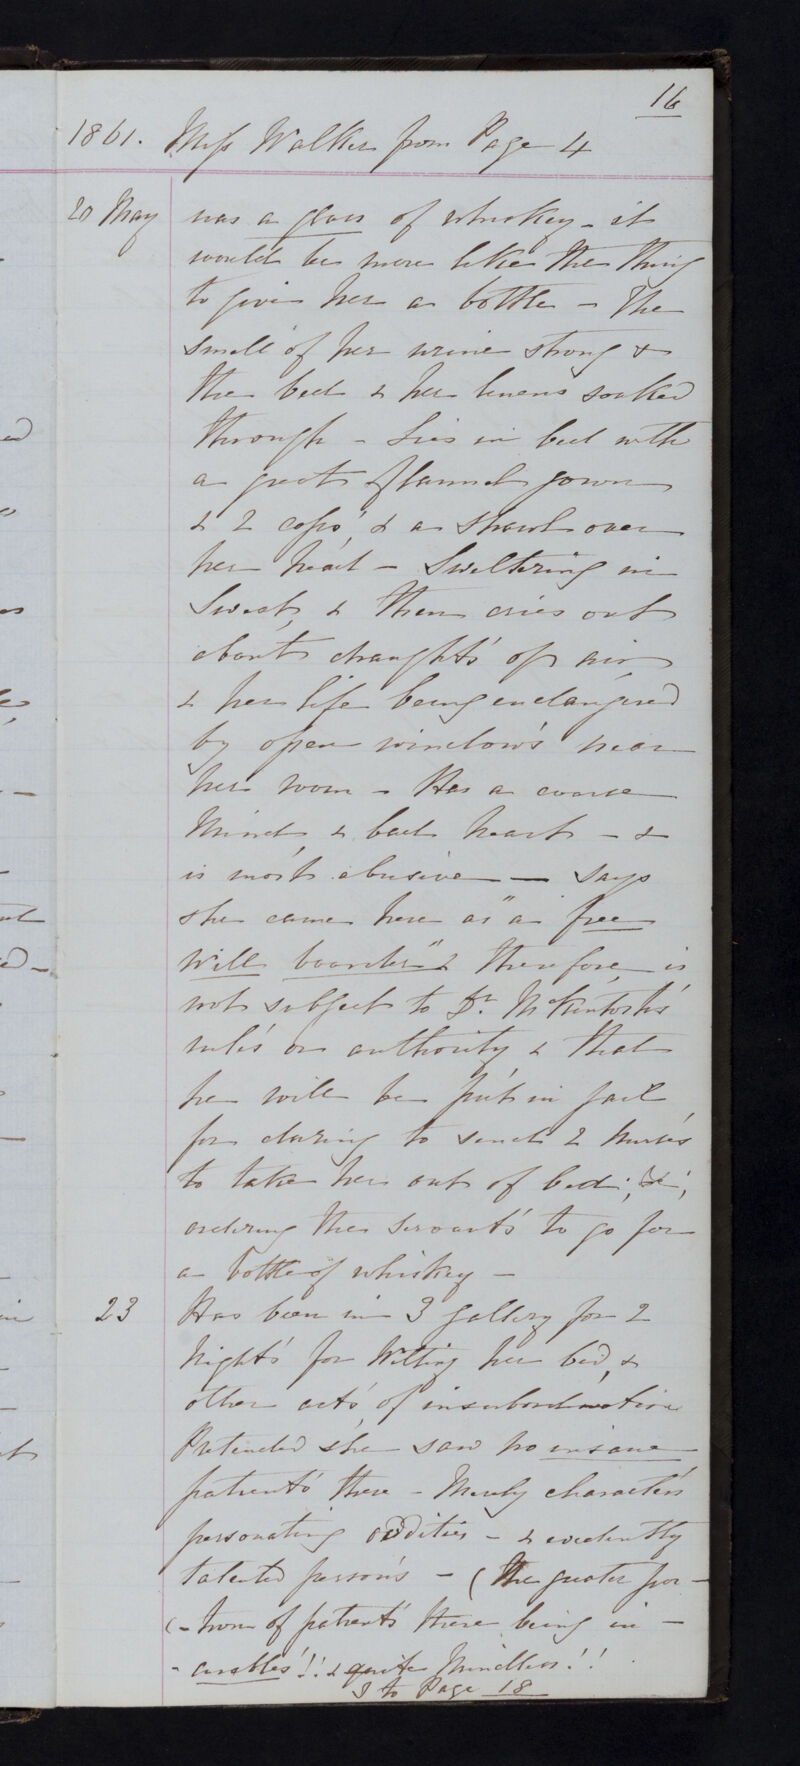 16
1861. Miss Walker from Page 4
20 May was a glass of whiskey - it
would be more like the thing
to give her a bottle - The
smell of her urine strong &
the bed & her linens soaked
through - Lies in bed with
a great flannel gown
& 2 caps, & a shawl over
her head - Sweltering in
Sweat, & then cries out
about draughts of air
& her life being endangered
by open windows near
her room - Has a coarse
Mind, & bad heart - &
is most abusive - says
she came here as "a free
will boarder" & therefore is
not subject to Dr. McKintosh's
rules or authority & that
he will be put in jail
for daring to send 2 Nurses
to take her out of bed; &c;
ordering the servants to go for
a bottle of whiskey -
23 Has been in 3 gallery for 2
Nights for Wetting her bed, &
other acts of insubordination
Pretended she saw no insane
patients there - Merely characters
personating oddities - & evidently
talented persons - (The greater por-
(-tion of patients there being in-
-curables!! & quite Mindless!!
to Page 18